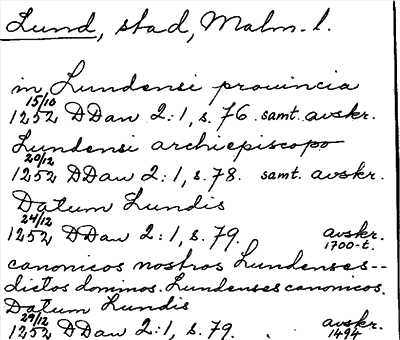 Lund, stad, Malm. l.
in Lundensi prouincia
15/10
1252 DDan 2:1, s. 76. samt. avskr.
Lundensi archiepiscopo
20/12
1252 DDan 2:1, s. 78. samt. avskr.
Datum Lundis
24/12
1252 DDan 2:1, s. 79. avskr.
1700-t.
canonicos nostros Lundenses--
dictos dominos. Lundenses canonicos.
Datum Lundis
29/12
1252 DDan 2:1, s. 79. avskr.
1494